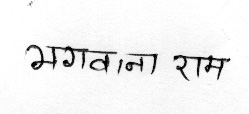 भगवाना राम